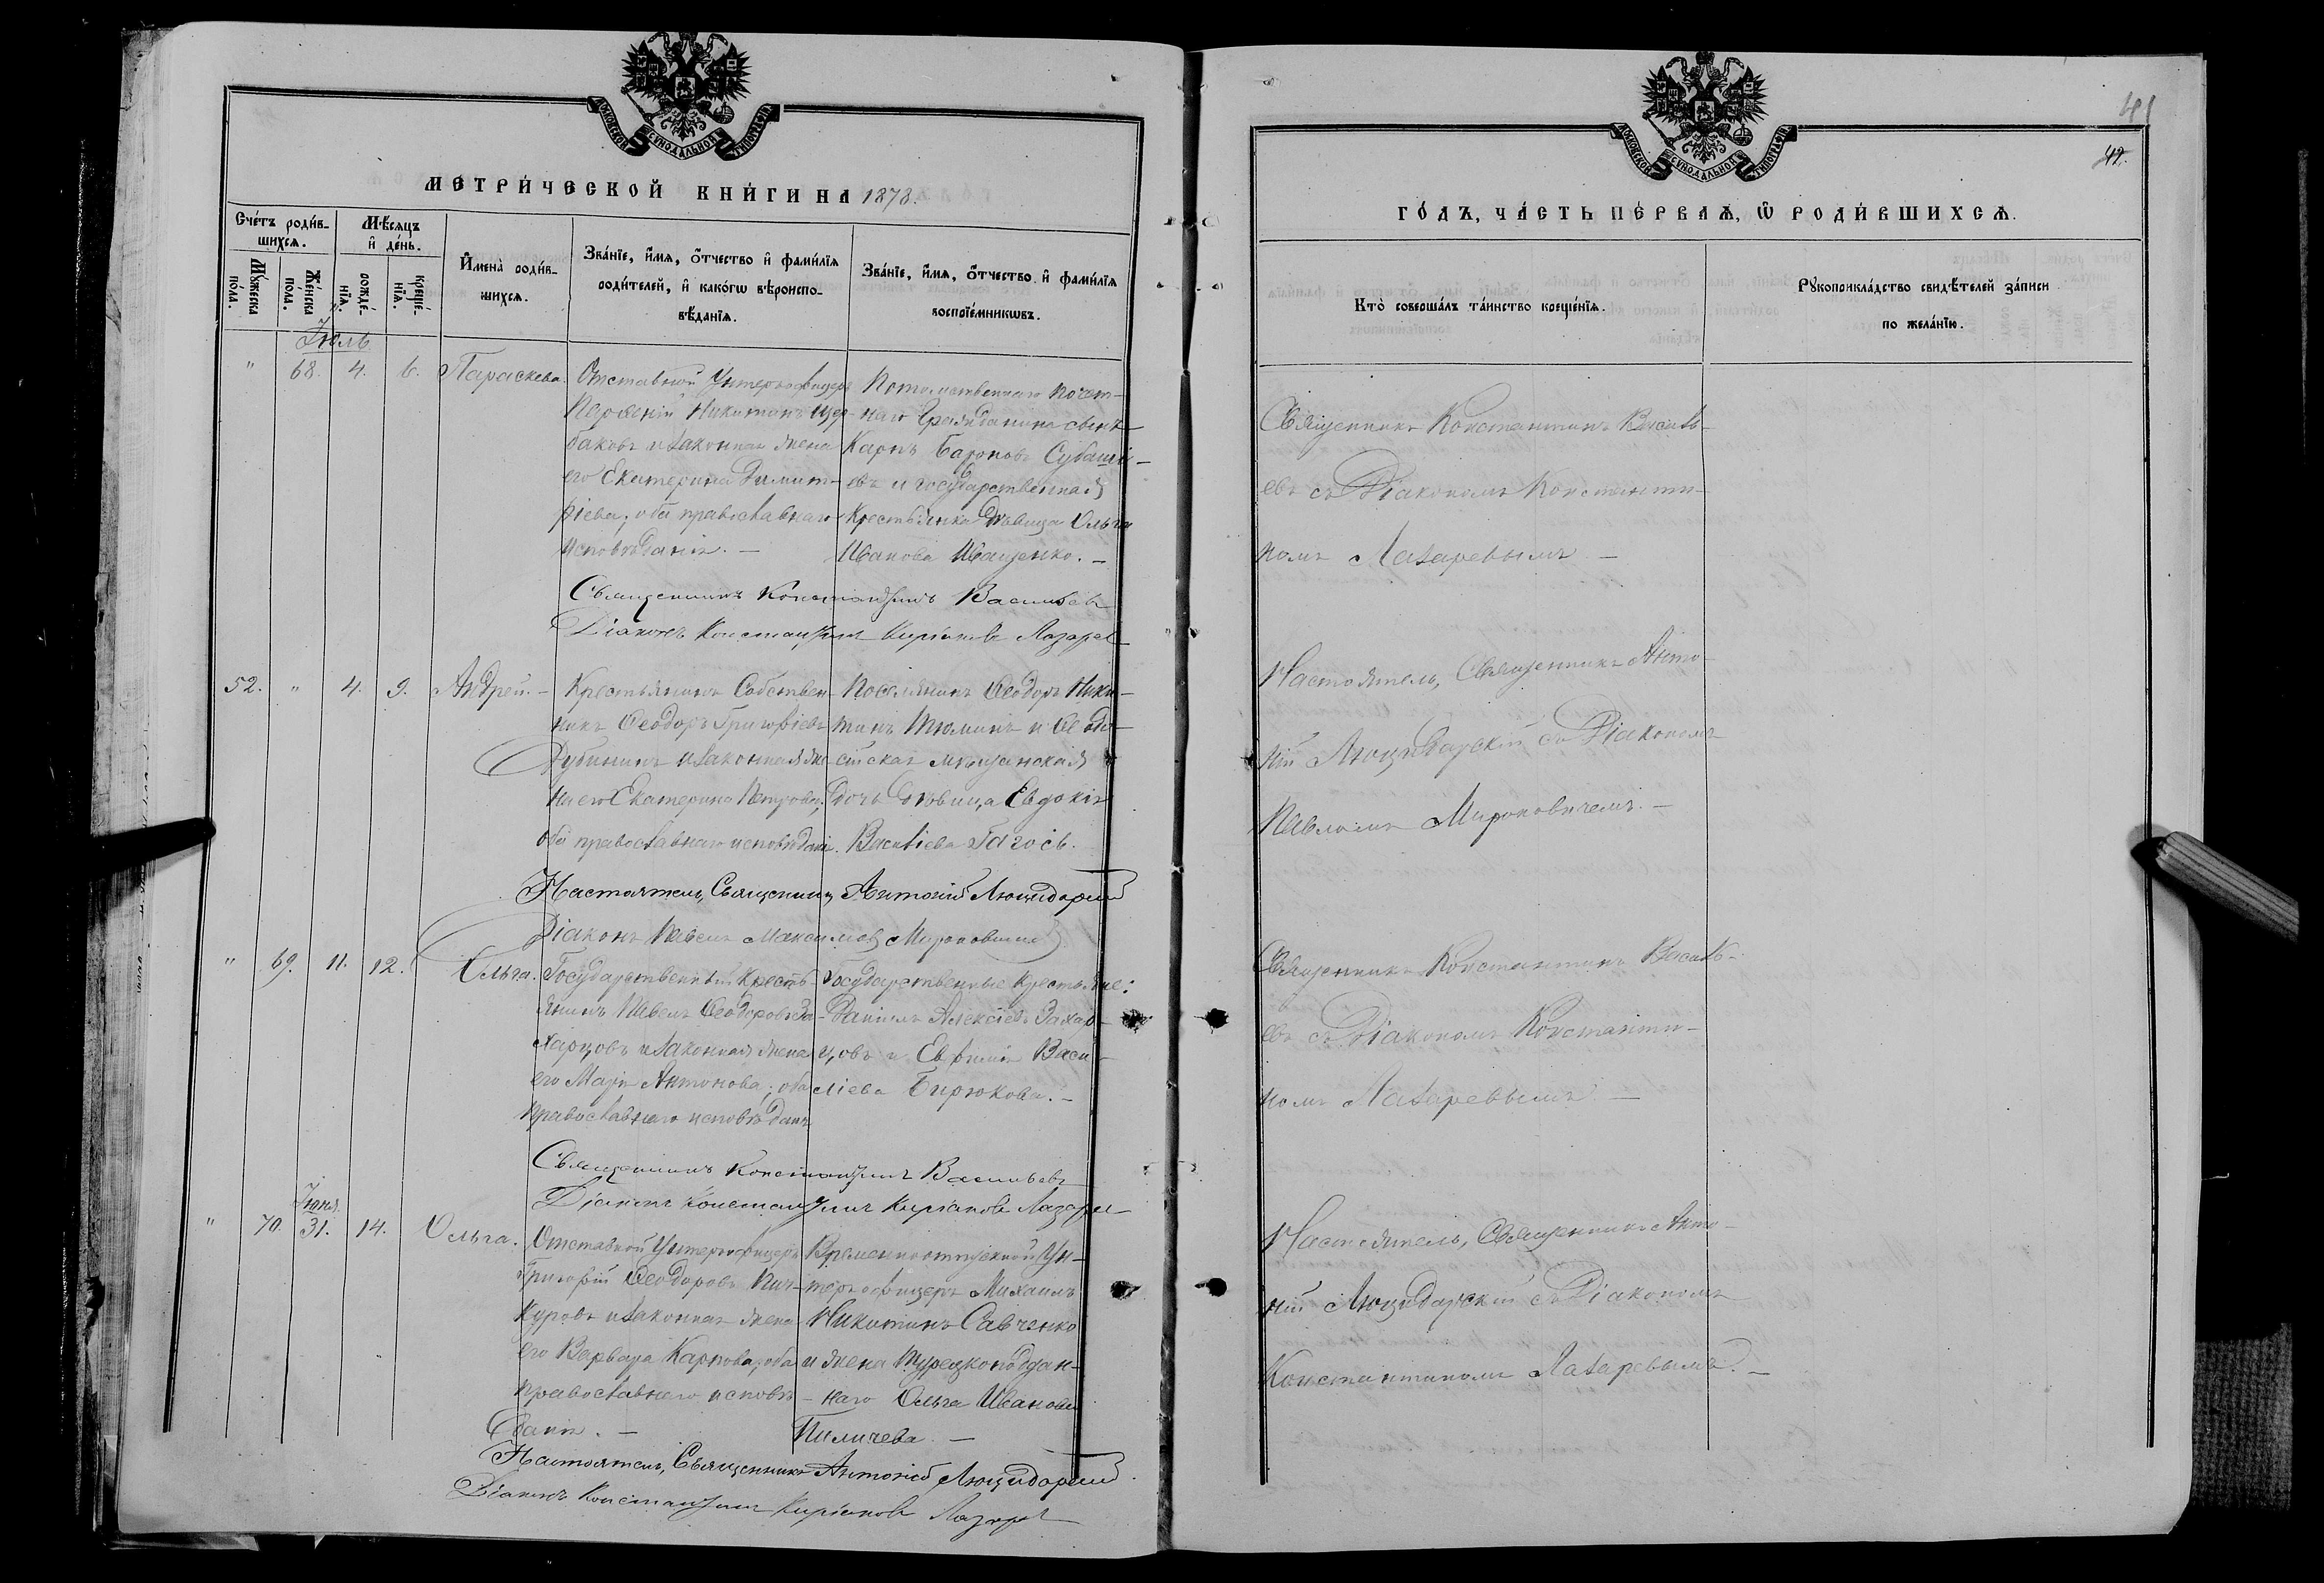 МОСКОВСКОЙ СѴНОДАЛЬНОЙ ТИПОГРАФІИ
МЕТРИ́ЧЕСКОЙ КНИ́ГИ НА 1878.
Сче́тъ роди́в-
шихсѧ.
Мѣ́сѧцъ
и҆ де́нь.
Мꙋ́жеска по́ла.
Же́нска по́ла.
рожде́нїѧ.
креще́нїѧ.
И҆мена̀ роди́в-
шихсѧ.
Зва́нїе, и҆́мѧ, ѻ҆́тчество и҆ фами́лїѧ
роди́телей, и҆ како́гѡ вѣроиспо-
вѣ́данїѧ.
Зва́нїе, и҆́мѧ, ѻ҆́тчество и҆ фами́лїѧ
воспрїе́мникѡвъ.
Іюль
" 68. 4. 6. Параскева.
Отставной Унтеръ-офицеръ
Никитинъ Щер-
баковъ и законная жена
его Екатерина Димит-
ріева, оба православнаго
исповѣданія. —
Потомственнаго почет-
наго Гражданина сынъ
Карпъ Субаши-
евъ и государственная
Крестьянка дѣвица Ольга
Иванова Иващенко. —
Священникъ Константинъ Васильевъ
Діаконъ Константинъ Киріаковъ Лазаревъ
52. " 4. 9. Андрей. —
Крестьянинъ Собствен-
никъ Ѳеодоръ Григоріевъ
Дубининъ и законная же-
на его Екатерина Петрова,
оба православнаго исповѣдані.
Поселянинъ Ѳеодоръ Ники-
тинъ Тюминъ и Ѳеодо-
сійская мѣщанская
дочь дѣвица Евдокія
Василіева Гагось.
Настоятель, Священникъ Антоній Люцидарскій
Діаконъ Павелъ Максимовъ Мироновичъ
" 69. 11. 12. Ольга.
Государственный Кресть-
янинъ Павелъ Ѳеодоровъ За-
харцовъ и законная жена
его Марія Антонова, оба
православнаго исповѣданія
Государственные крестьяне:
Даніилъ Алексіевъ Захар-
цовъ и Евфимія Васи-
ліева Бирюкова. —
Священникъ Константинъ Васильевъ
Діаконъ Константинъ Киріаковъ Лазаревъ
Іюня.
" 70. 31. 14. Ольга.
Отставной Унтеръ-офицеръ
Григорій Ѳеодоровъ Пич-
куровъ и законная жена
его Варвара Карпова, оба
православнаго исповѣ-
данія. —
Временноотпускной Ун-
теръ-офицеръ Михаилъ
Никитинъ Савченко
и жена Турецкоподдан-
наго Ольга Иванова
Пиличева. —
Настоятель, Священникъ Антоній Люцидарскій
Діаконъ Константинъ Киріаковъ Лазаревъ
41
42.
МОСКОВСКОЙ СѴНОДАЛЬНОЙ ТИПОГРАФІИ
ГО́ДЪ, ЧА́СТЬ ПЕ́РВАѦ, Ѡ҆ РОДИ́ВШИХСѦ.
Кто̀ соверша́лъ та́инство креще́нїѧ.
Рꙋкоприкла́дство свидѣ́телей за́писи
по жела́нїю.
Священникъ Константинъ Василь-
евъ съ Діакономъ Константи-
номъ Лазаревымъ —
Настоятель, Священникъ Анто-
ній Люцидарскій съ Діакономъ
Павломъ Мироновичемъ. —
Священникъ Константинъ Василь-
евъ съ Діакономъ Константи-
номъ Лазаревымъ —
Настоятель, Священникъ Анто-
ній Люцидарскій съ Діакономъ
Константиномъ Лазаревымъ. —